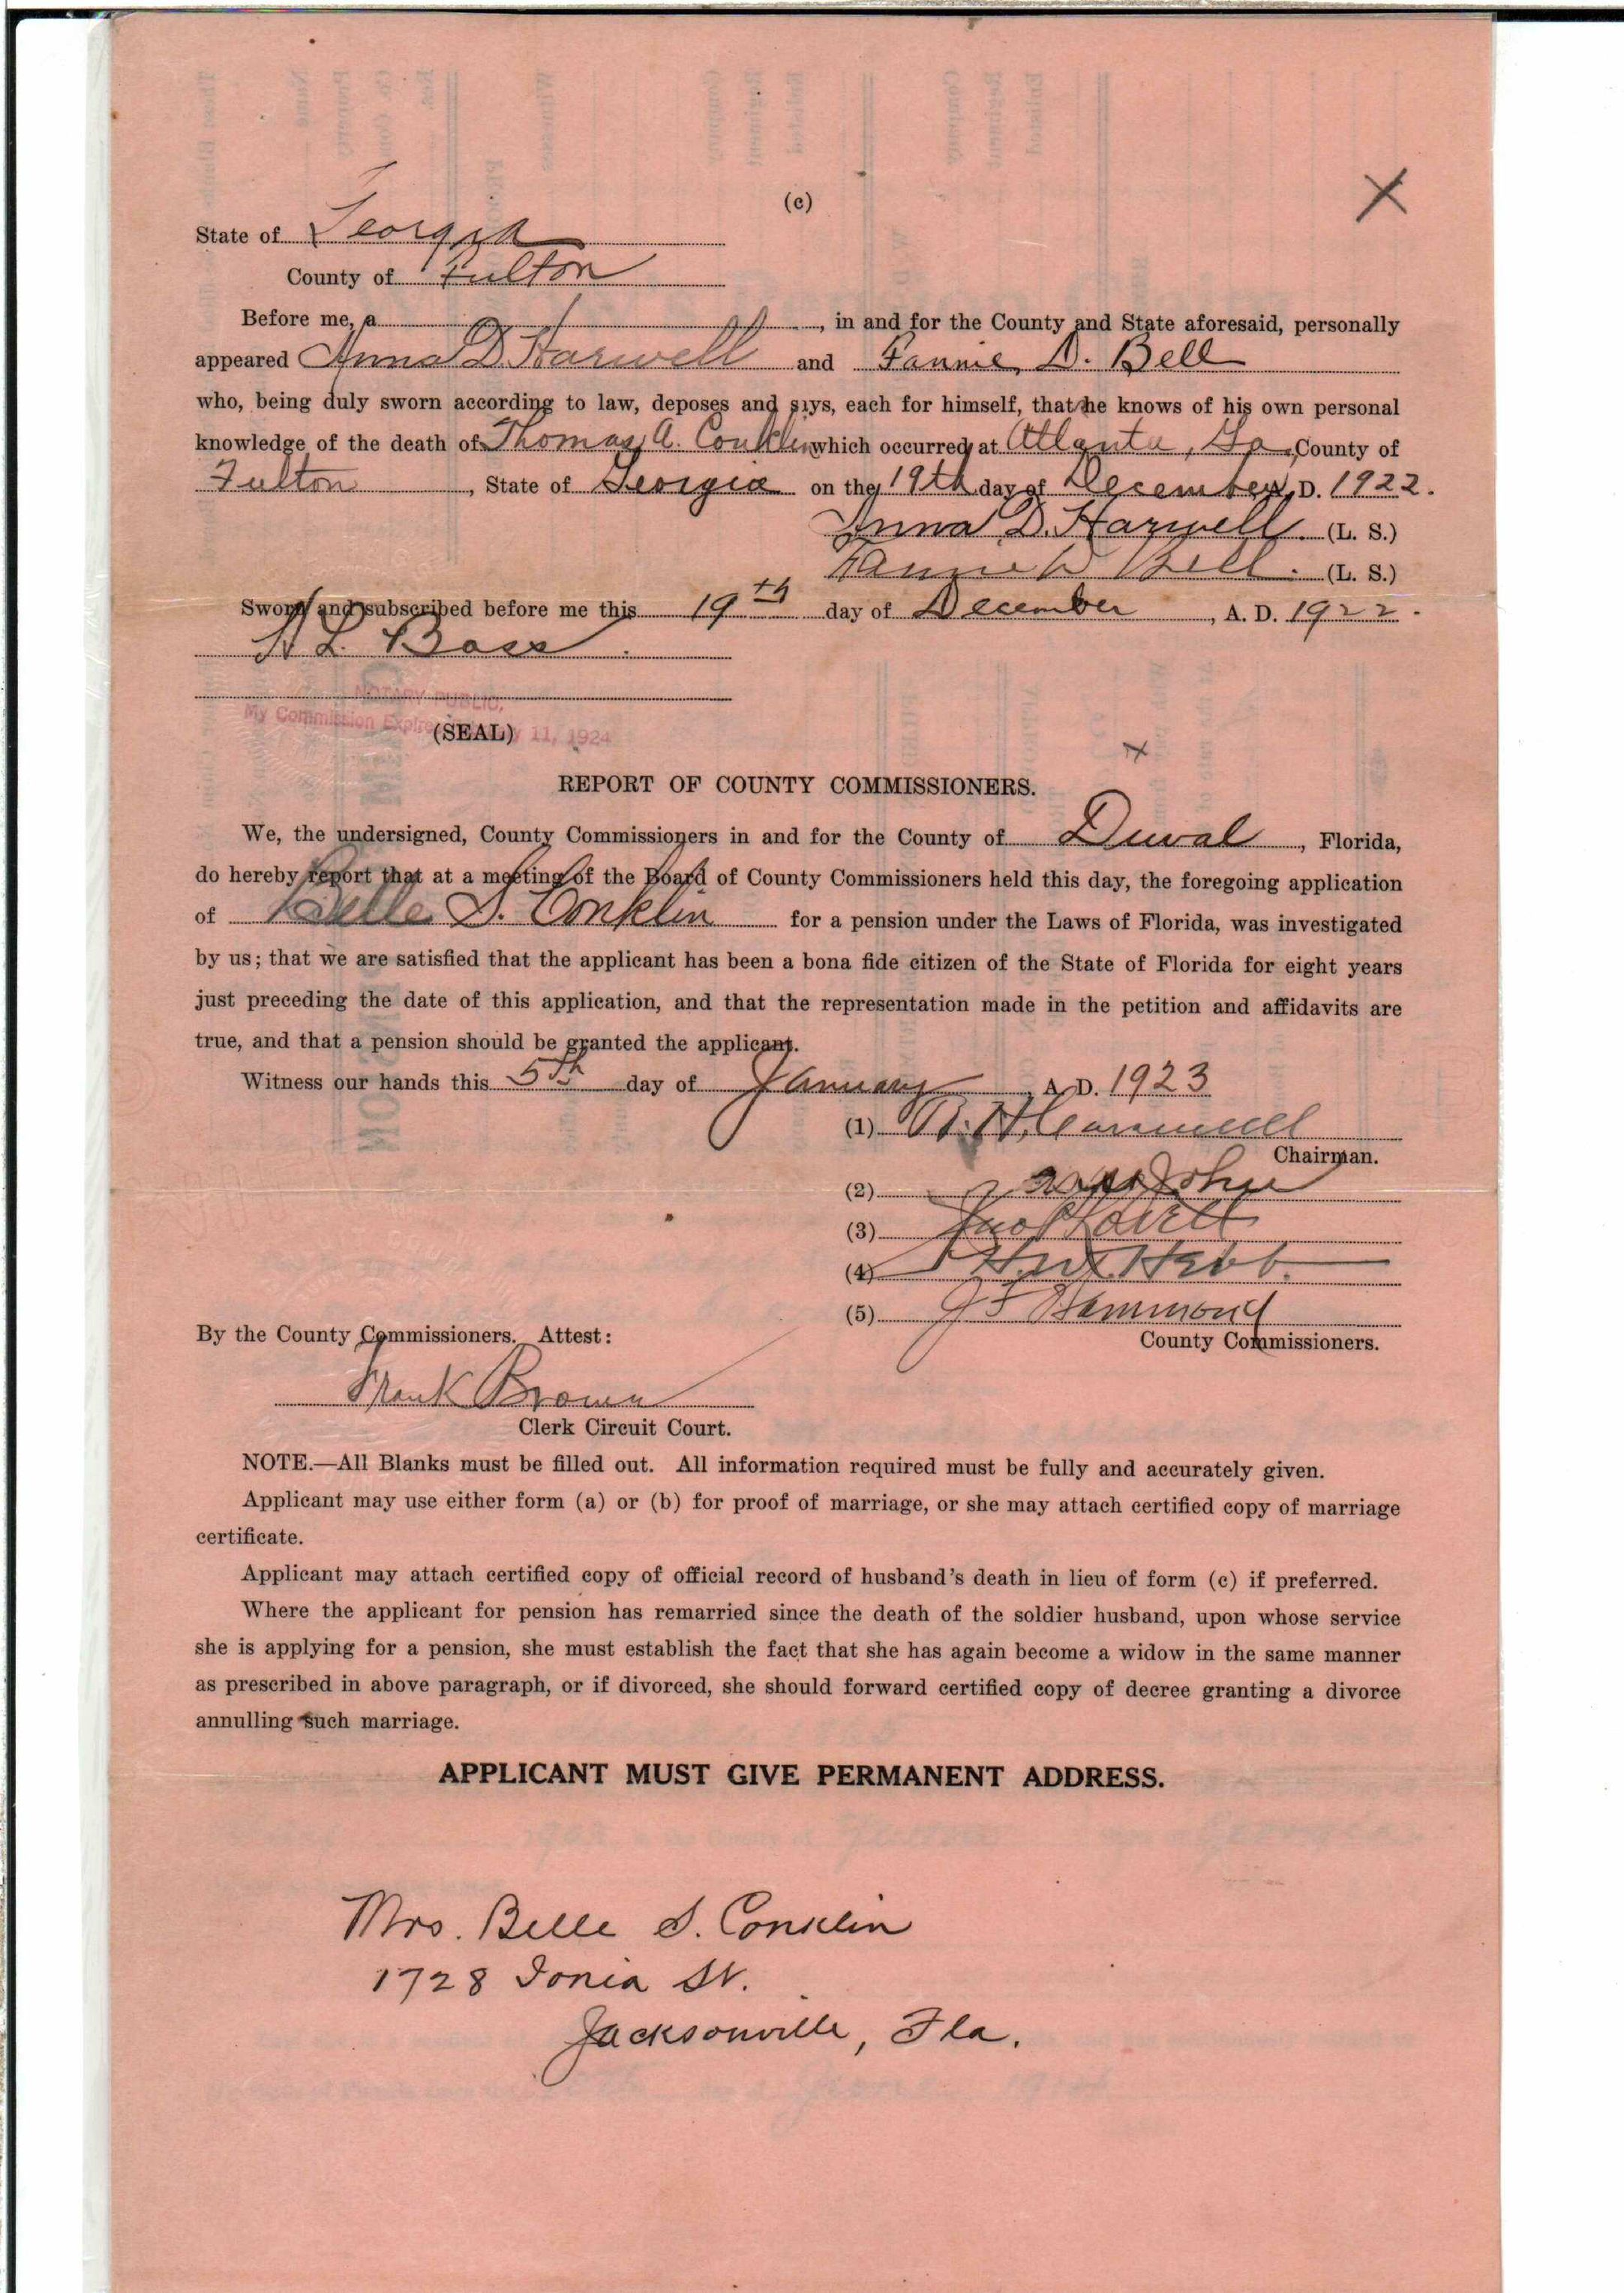 (c)
State of Georgia
County of Fulton
Before me, a , in and for the County and State aforesaid, personally
appeared Anna D. Harwell and Fannie D. Bell
who, being duly sworn according to law, deposes and says, each for himself, that he knows of his own personal
knowledge of the death of Thomas A. Conklin which occurred at Atlanta, Ga. County of
Fulton , State of Georgia on the 19th day of December A. D. 1922.
Anna D. Harwell. (L. S.)
Fannie D Bell. (L. S.)
Sworn and subscribed before me this 19th day of December , A. D. 1922.
L. Bass
NOTARY PUBLIC,
My Commission Expires 11, 1924
(SEAL)
REPORT OF COUNTY COMMISSIONERS.
We, the undersigned, County Commissioners in and for the County of Duval , Florida,
do hereby report that at a meeting of the Board of County Commissioners held this day, the foregoing application
of Belle S. Conklin for a pension under the Laws of Florida, was investigated
by us; that we are satisfied that the applicant has been a bona fide citizen of the State of Florida for eight years
just preceding the date of this application, and that the representation made in the petition and affidavits are
true, and that a pension should be granted the applicant.
Witness our hands this 5th day of January , A. D. 1923
(1)
Chairman.
(2)
(3)
(4) Hebb.
(5) J F Hammond
By the County Commissioners. Attest: County Commissioners.
Frank Brown
Clerk Circuit Court.
NOTE.—All Blanks must be filled out. All information required must be fully and accurately given.
Applicant may use either form (a) or (b) for proof of marriage, or she may attach certified copy of marriage
certificate.
Applicant may attach certified copy of official record of husband's death in lieu of form (c) if preferred.
Where the applicant for pension has remarried since the death of the soldier husband, upon whose service
she is applying for a pension, she must establish the fact that she has again become a widow in the same manner
as prescribed in above paragraph, or if divorced, she should forward certified copy of decree granting a divorce
annulling such marriage.
APPLICANT MUST GIVE PERMANENT ADDRESS.
Mrs. Belle S. Conklin
1728 Ionia St.
Jacksonville, Fla.